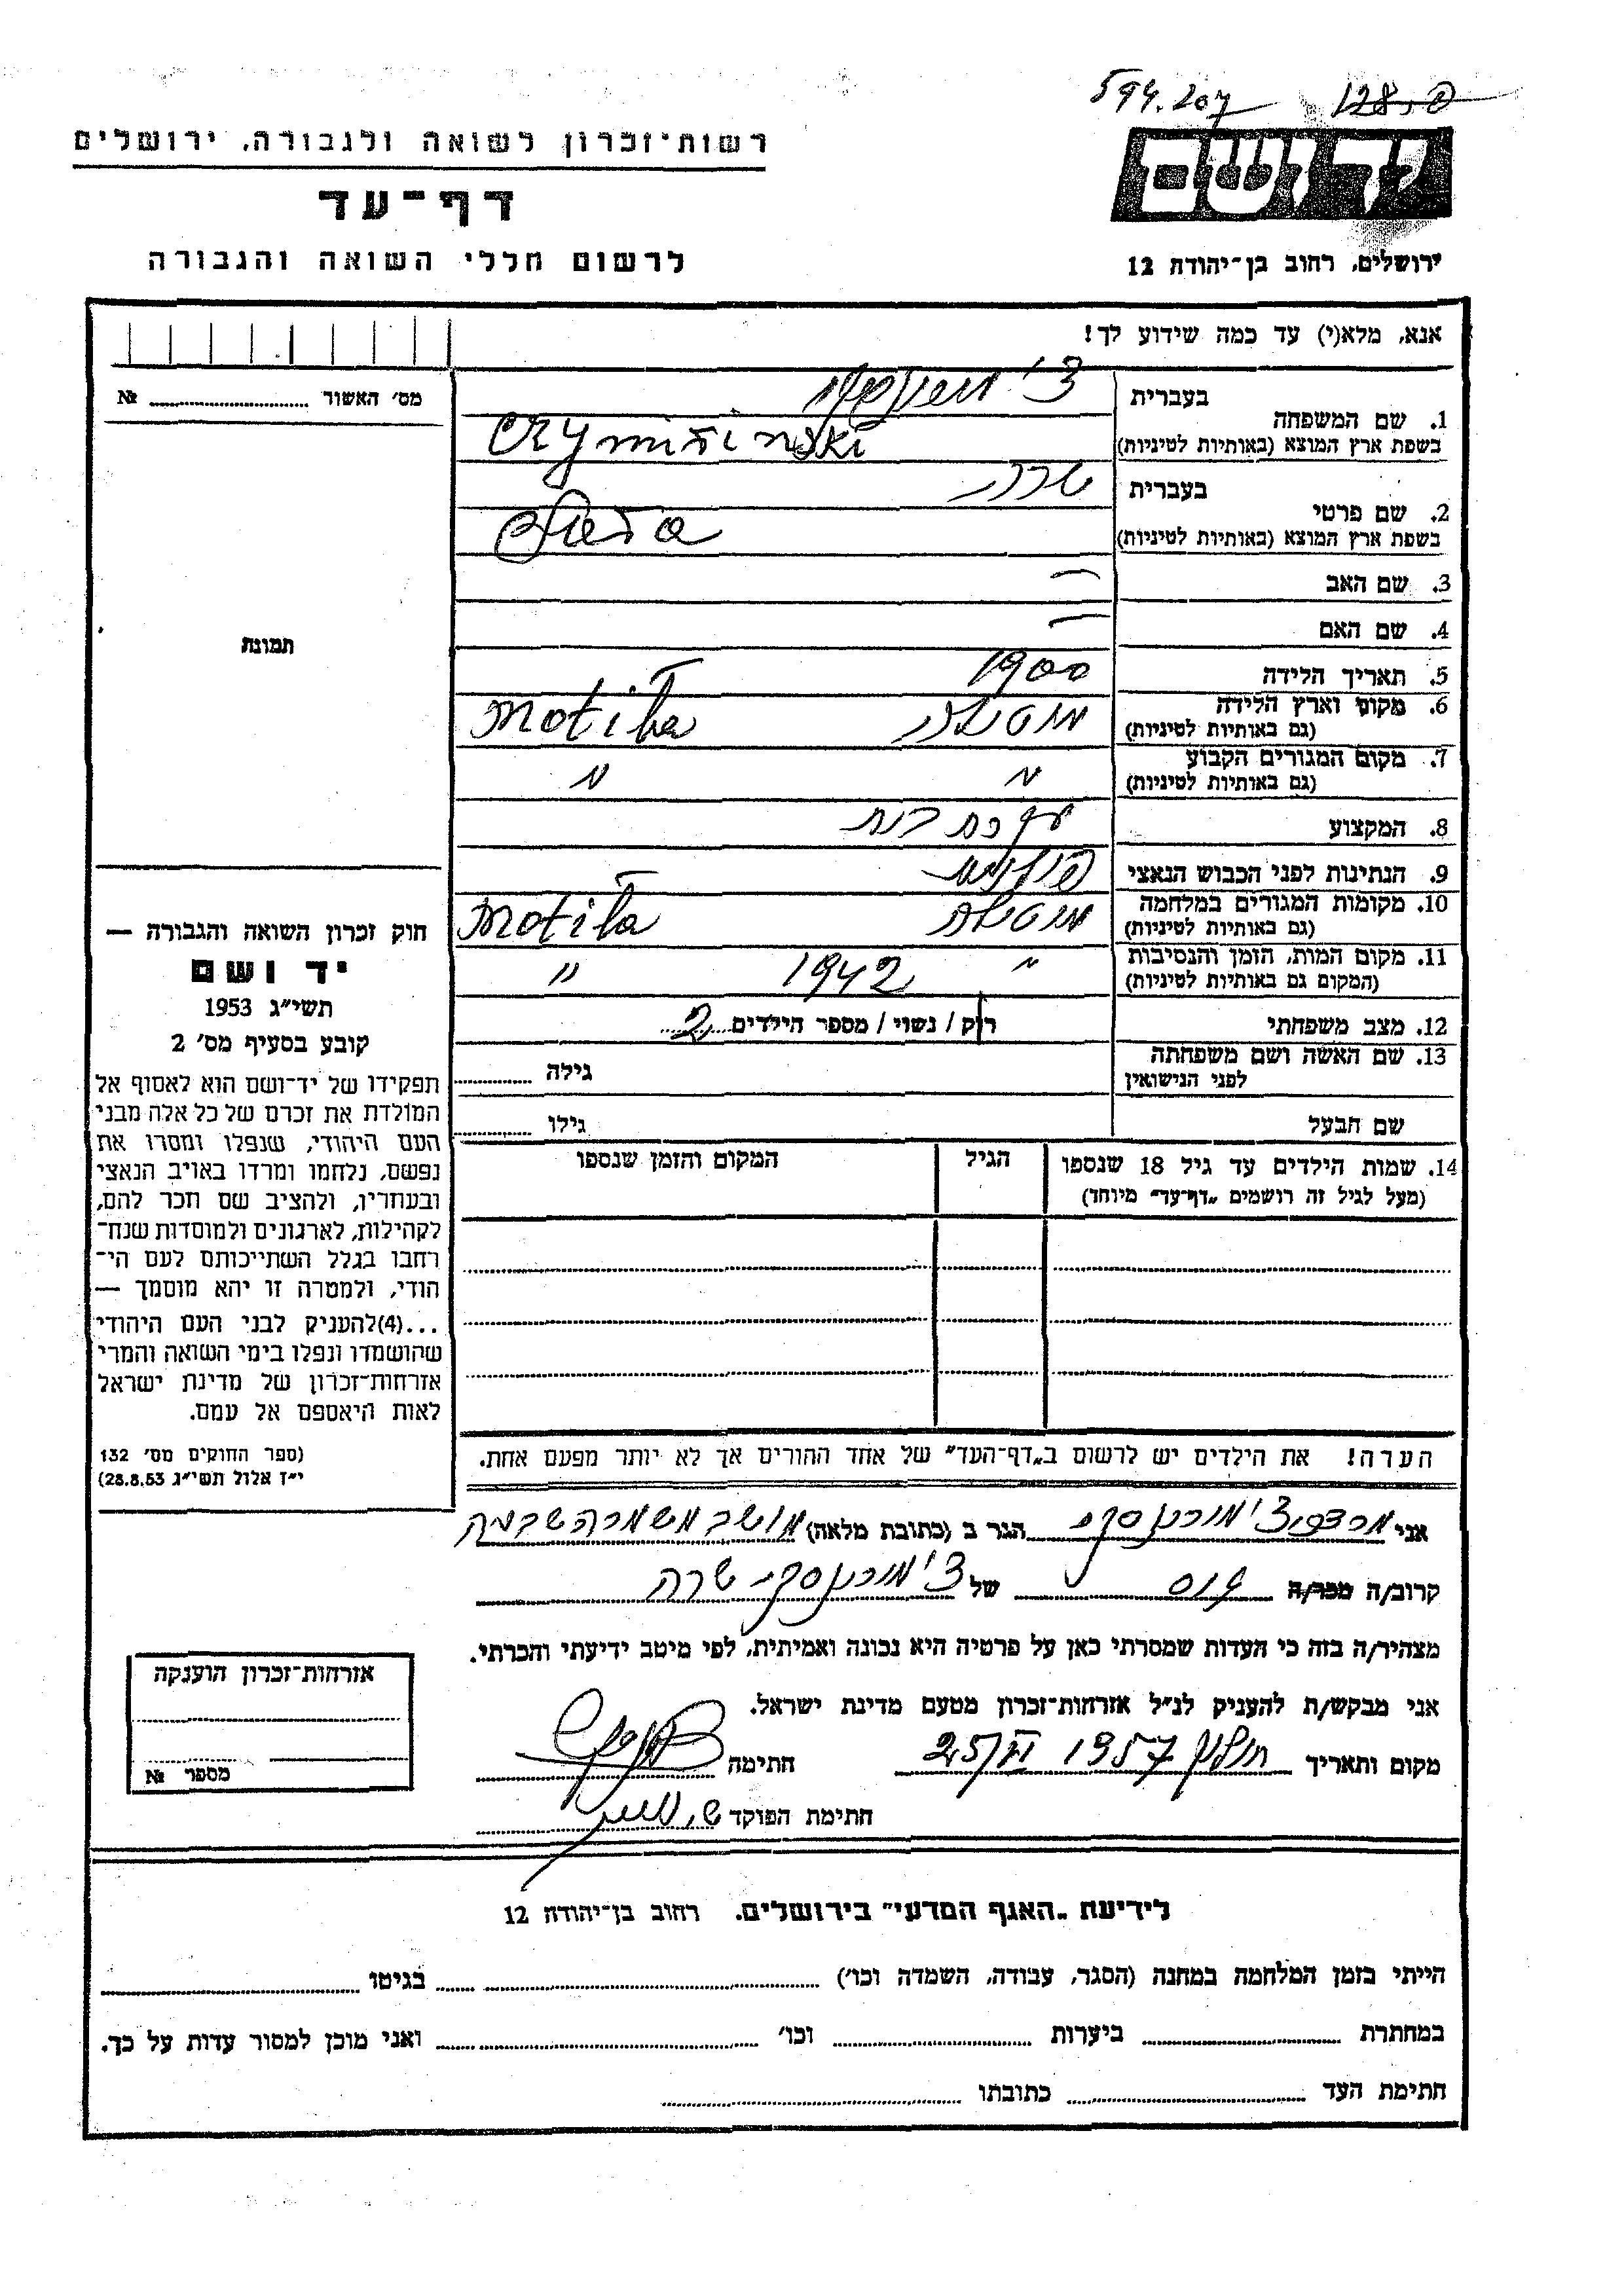 594.207 128
רשות־זכרון לשואה ולגבורה, ירושלים
יד ושם
דף־עד
לרשום חללי השואה והגבורה
ירושלים, רחוב בן־יהודה 12
אנא, מלא(י) עד כמה שידוע לך!
מס׳ האשור № ........
1. שם המשפחה
בעברית
בשפת ארץ המוצא (באותיות לטיניות)
2. שם פרטי
בעברית שרה
בשפת ארץ המוצא (באותיות לטיניות) Sara
3. שם האב —
4. שם האם —
5. תאריך הלידה 1900
6. מקום וארץ הלידה
(גם באותיות לטיניות) מוטילה Motila
7. מקום המגורים הקבוע
(גם באותיות לטיניות) " "
8. המקצוע עקרת בית
9. הנתינות לפני הכבוש הנאצי פולנית
10. מקומות המגורים במלחמה
(גם באותיות לטיניות) מוטילה Motila
11. מקום המות, הזמן והנסיבות
(המקום גם באותיות לטיניות) " 1942 "
12. מצב משפחתי רוק / נשוי / מספר הילדים 2
13. שם האשה ושם משפחתה
לפני הנישואין
גילה ........
שם הבעל גילו ........
14. שמות הילדים עד גיל 18 שנספו
(מעל לגיל זה רושמים „דף־עד” מיוחד)
הגיל
המקום והזמן שנספו
הערה! את הילדים יש לרשום ב„דף־העד” של אחד ההורים אך לא יותר מפעם אחת.
תמונה
חוק זכרון השואה והגבורה —
יד ושם
תשי״ג 1953
קובע בסעיף מס׳ 2
תפקידו של יד־ושם הוא לאסוף אל
המולדת את זכרם של כל אלה מבני
העם היהודי, שנפלו ומסרו את
נפשם, נלחמו ומרדו באויב הנאצי
ובעוזריו, ולהציב שם וזכר להם,
לקהילות, לארגונים ולמוסדות שנח־
רבו בגלל השתייכותם לעם הי־
הודי, ולמטרה זו יהא מוסמך —
...(4)להעניק לבני העם היהודי
שהושמדו ונפלו בימי השואה והמרי
אזרחות־זכרון של מדינת ישראל
לאות היאספם אל עמם.
(ספר החוקים מס׳ 132
י״ז אלול תשי״ג 28.8.53)
אני צ'ימרינסקי הגר ב (כתובת מלאה) מושב משמר השבעה
קרוב/ה מכר/ה גיס של צ'ימרינסקי שרה
מצהיר/ה בזה כי העדות שמסרתי כאן על פרטיה היא נכונה ואמיתית, לפי מיטב ידיעתי והכרתי.
אני מבקש/ת להעניק לנ״ל אזרחות־זכרון מטעם מדינת ישראל.
מקום ותאריך חולון 1957 25/VI חתימה
חתימת הפוקד
אזרחות־זכרון הוענקה
מספר №
לידיעת „האגף המדעי” בירושלים, רחוב בן־יהודה 12
הייתי בזמן המלחמה במחנה (הסגר, עבודה, השמדה וכו׳) ........ בגיטו ........
במחתרת ........ ביערות ........ וכו׳ ........ ואני מוכן למסור עדות על כך.
חתימת העד ........ כתובתו ........